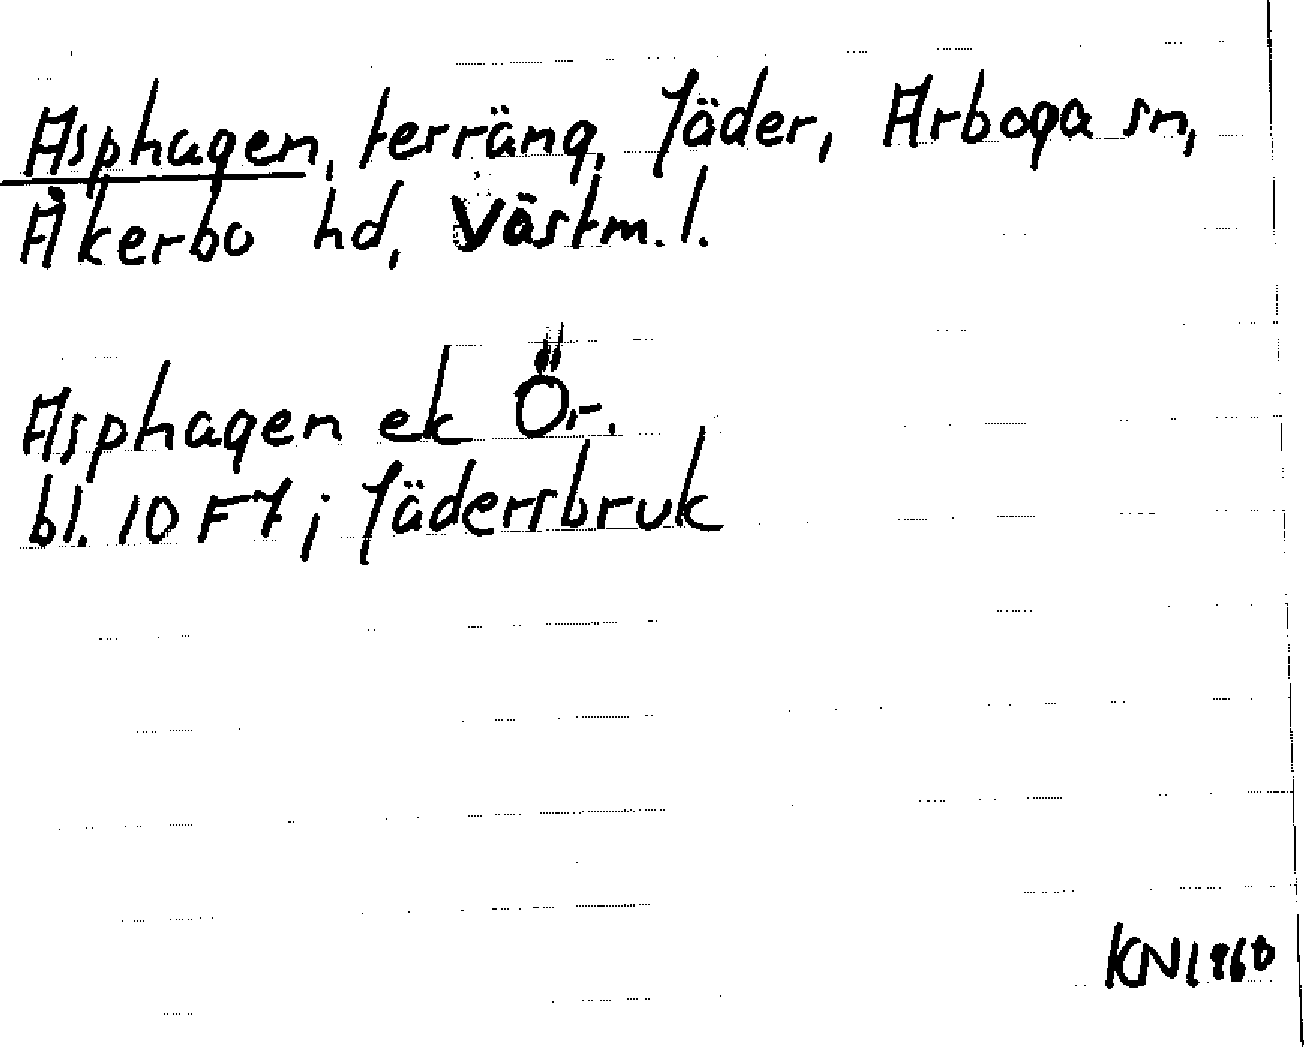 Asphagen, terräng, Jäder, Arboga sn,
Åkerbo hd, Västm. l.
Asphagen ek Ör.
bl. 10 F 7 j Jädersbruk
KN 1960